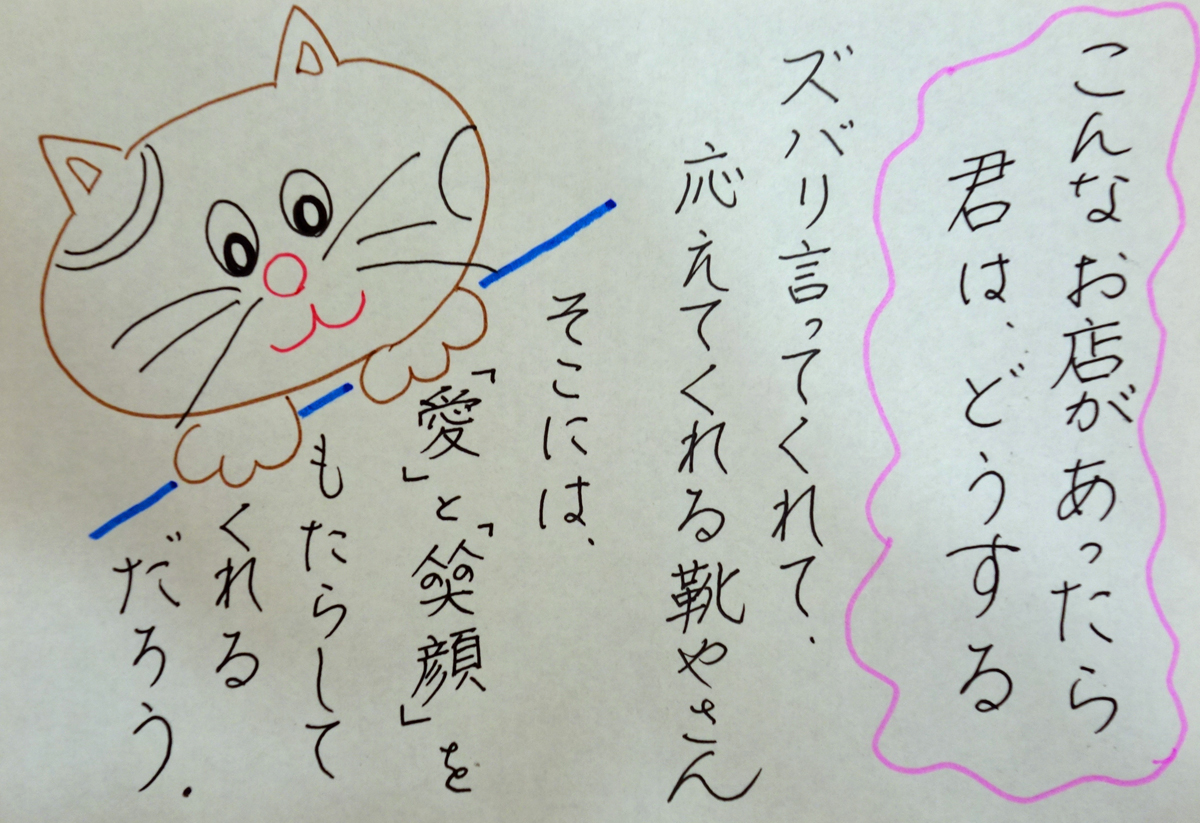 こんなお店があったら
君は、どうする
ズバリ言ってくれて、
応えてくれる靴やさん
そこには、
「愛」と「笑顔」を
もたらして
くれる
だろう.